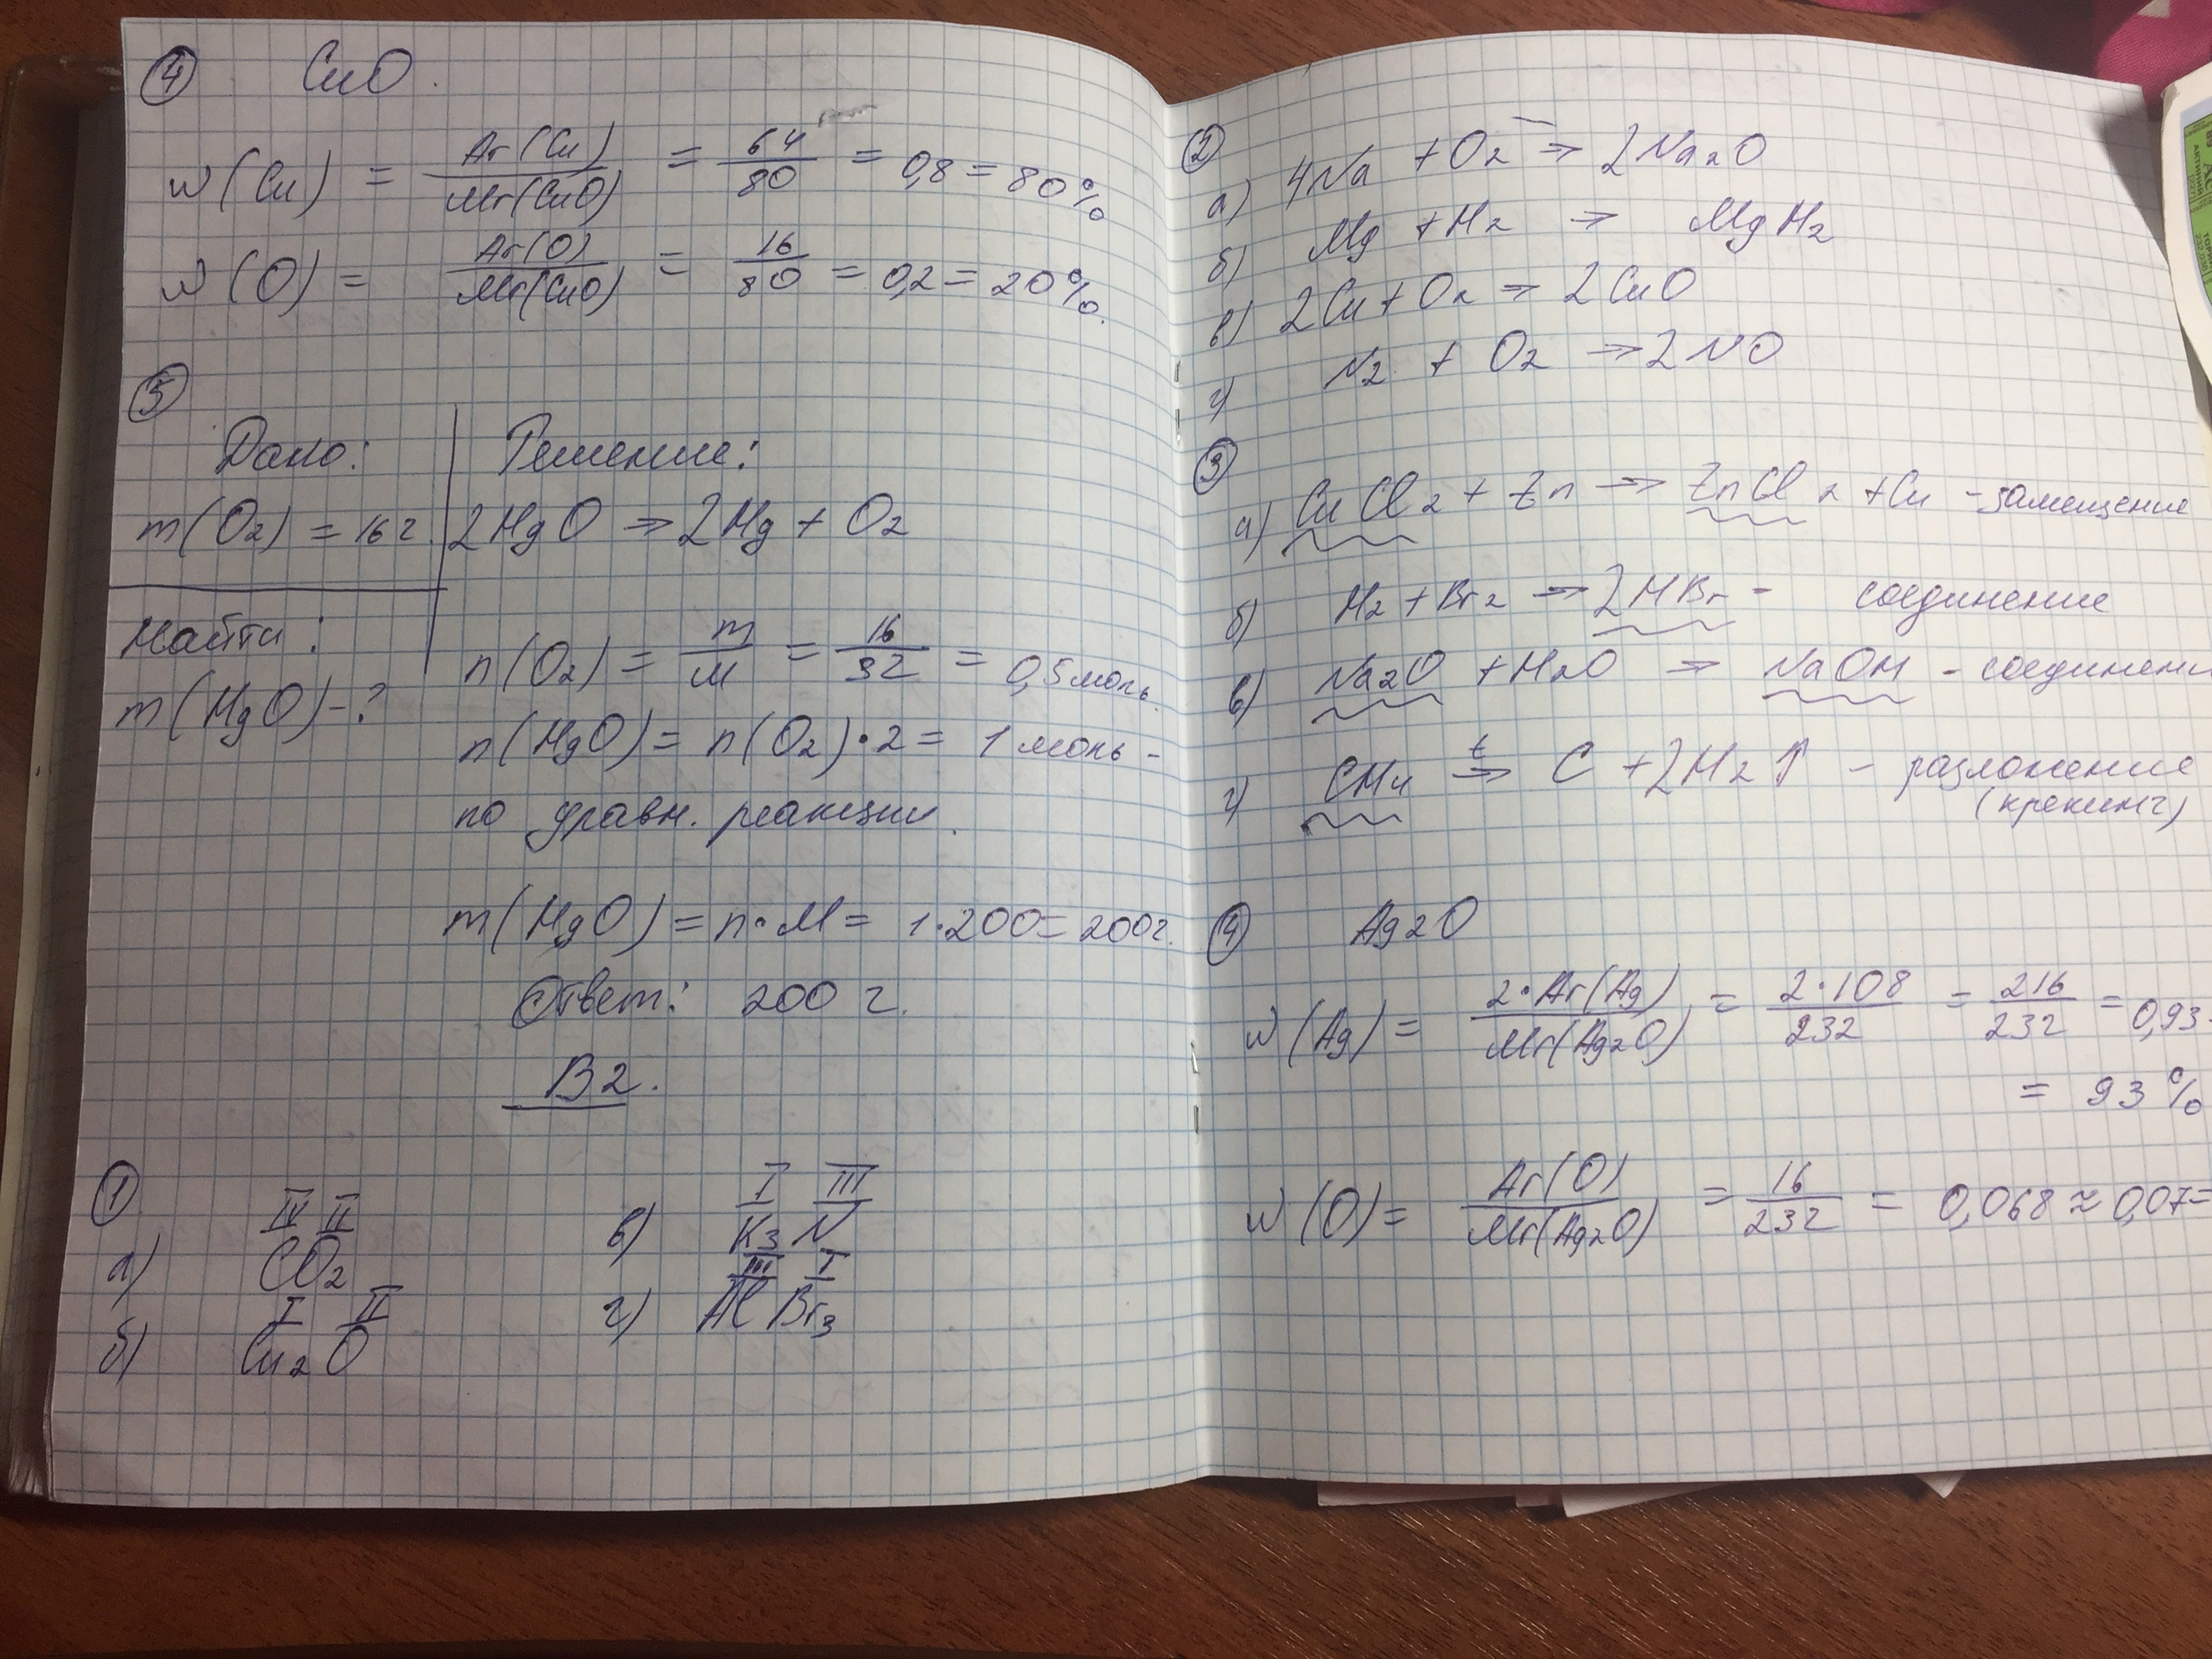 ④ CuO.
w(Cu) = Ar(Cu)/Mr(CuO) = 64/80 = 0,8 = 80%
w(O) = Ar(O)/Mr(CuO) = 16/80 = 0,2 = 20%.
⑤
Дано:
m(O2) = 16 г.
Найти:
m(HgO) - ?
Решение:
2HgO → 2Hg + O2
n(O2) = m/M = 16/32 = 0,5 моль.
n(HgO) = n(O2)·2 = 1 моль -
по уравн. реакции.
m(HgO) = n·M = 1·200 = 200г.
Ответ: 200 г.
В2.
①
а) IV II
CO2
б) I II
Cu2O
в) I III
K3N
г) III I
AlBr3
②
а) 4Na + O2 → 2Na2O
б) Mg + H2 → MgH2
в) 2Cu + O2 → 2CuO
г) N2 + O2 → 2NO
③
а) CuCl2 + Zn → ZnCl2 + Cu - замещение
б) H2 + Br2 → 2HBr - соединение
в) Na2O + H2O → NaOH - соединени
г) CH4 t→ C + 2H2↑ - разложение
(крекинг)
④ Ag2O
w(Ag) = 2·Ar(Ag)/Mr(Ag2O) = 2·108/232 = 216/232 = 0,93
= 93%
w(O) = Ar(O)/Mr(Ag2O) = 16/232 = 0,068 ≈ 0,07 =